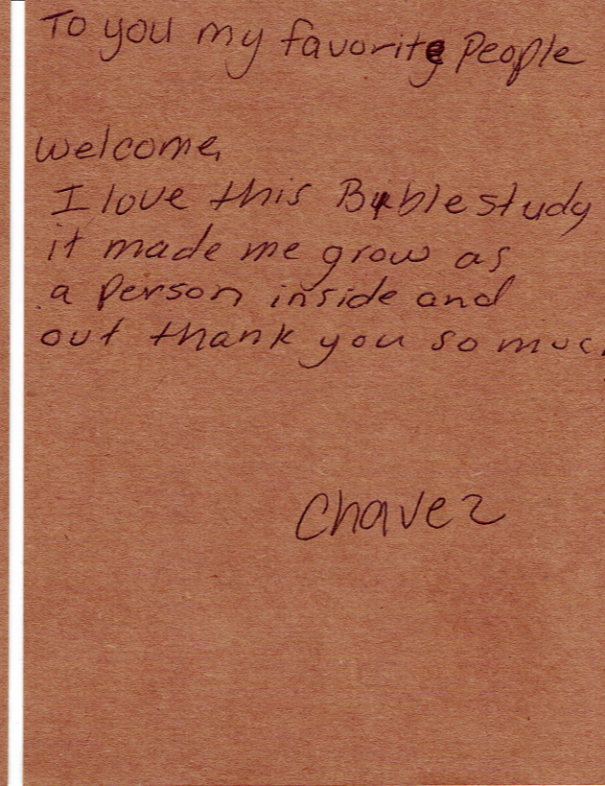 To you my favorite People
welcome,
I love this Biblestudy
it made me grow as
a Person inside and
out thank you so muc
Chavez